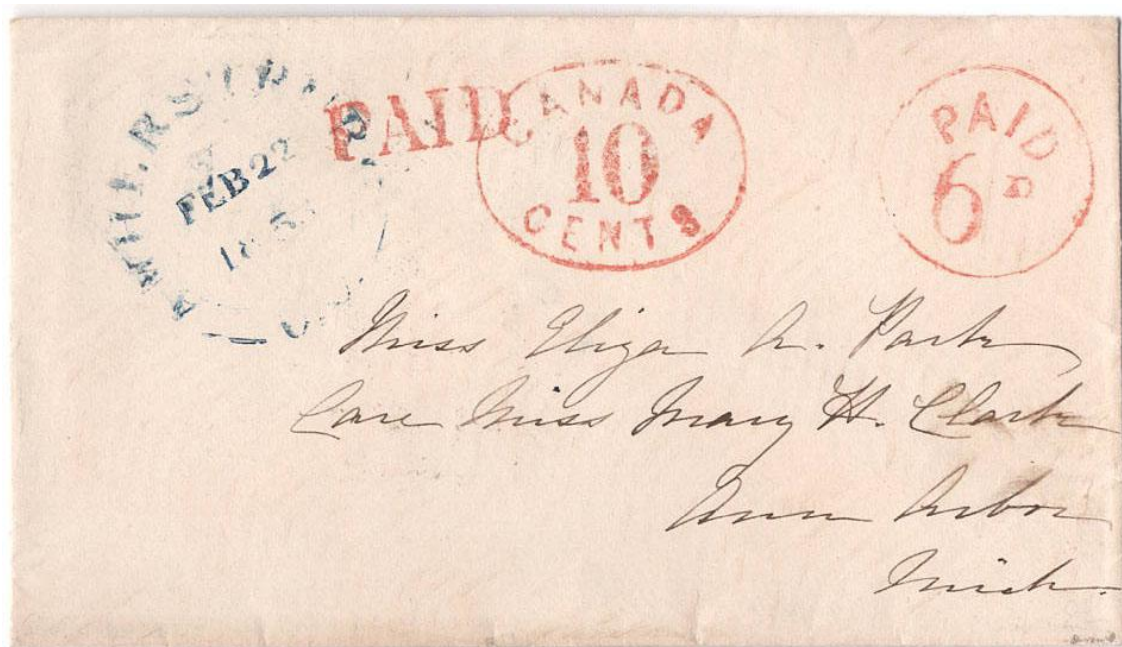 FEB 22
PAID
CANADA
10
CENTS
PAID
6D
Miss Eliza A. Park
Care Miss Mary H. Clark
Ann Arbor
Mich.